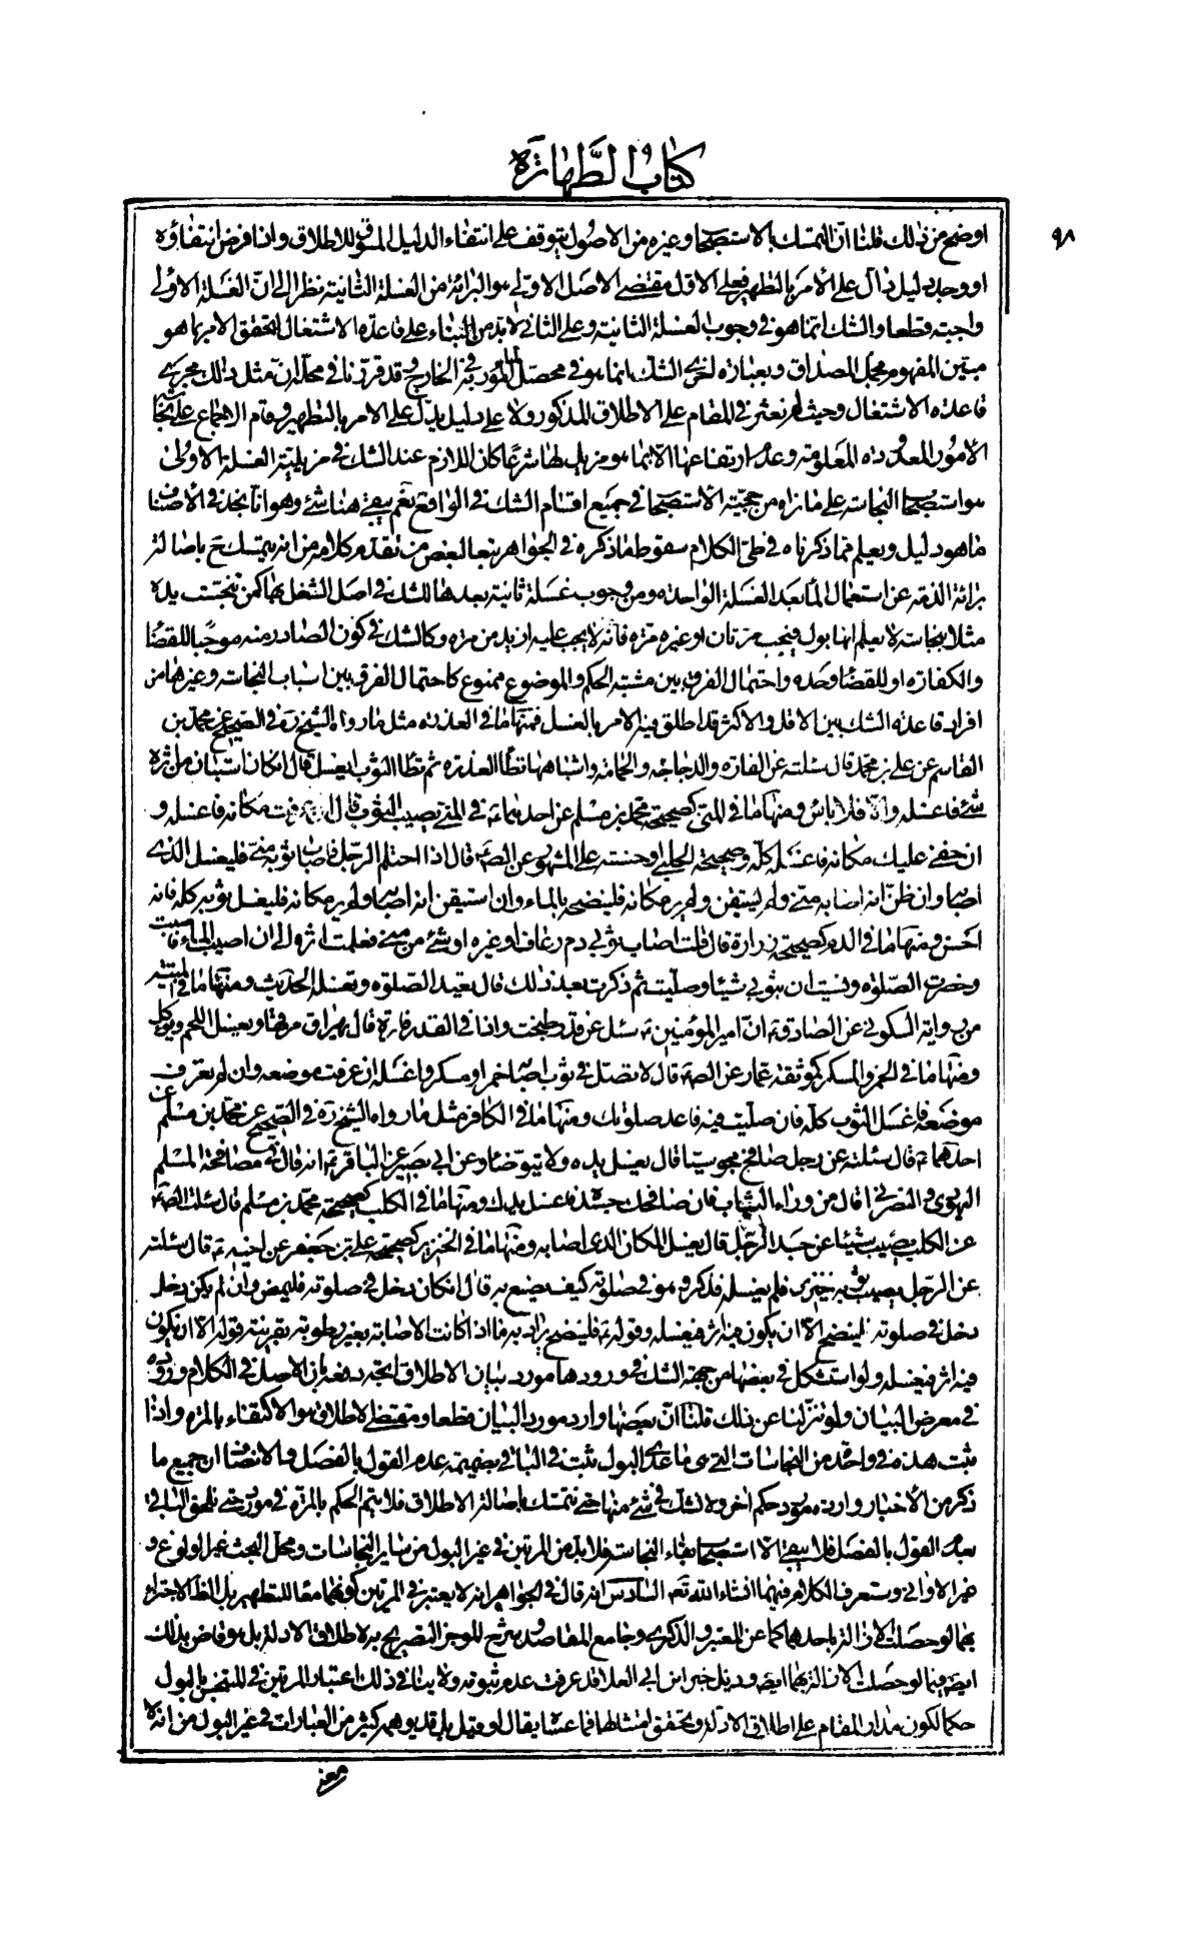 كتاب الطهارة
٩٨
اوضح من ذلك قلنا انّ التمسّك بالاستصحاب وغيره من الاصول يتوقف على انتفاء الدليل المسوق للاطلاق واذا فرض انتفاؤه
او وجد دليل دالّ على الأمر بالتطهير فعلى الاوّل مقتضى الاصل الاوّلى هو البرائة من الغسلة الثانية نظرا الى انّ الغسلة الاولى
واجبة قطعا والشك انما هو فى وجوب الغسلة الثانية وعلى الثانى لا بد من البناء على قاعدة الاشتغال لتحقق الامر بما هو
مبيّن المفهوم مجمل المصداق وبعبارة اخرى الشك انما هو فى محصّل المأمور به فى الخارج وقد قررنا فى محله ان مثل ذلك مجرى
قاعدة الاشتغال وحيث لم نعثر فى المقام على الاطلاق المذكور ولا على دليل يدلّ على الامر بالتطهير وقام الاجماع على نجاسة
الأمور المعدودة المعلومة وعدم ارتفاعها الّا بما هو مزيل لها شرعًا كان اللازم عند الشك فى مزيلية الغسلة الاولى
هو استصحاب النجاسة على ما نراه من حجية الأستصحاب فى جميع اقسام الشك فى الرافع نعم يبقى هنا شئ وهو انا نجد فى الأصناف
ما هو دليل ويعلم مما ذكرناه فى طىّ الكلام سقوط ما ذكره فى الجواهر تبعا لبعض من تقدم كلامه من انه يتمسك ح باصالة
برائة الذمة عن استعمال الماء بعد الغسلة الواحدة ومن وجوب غسلة ثانية بعدها للشك فى اصل الشغل بها كمن تنجّست يده
مثلا بنجاسة لا يعلم انها بول فيجب مرتان او غيره مرّة فانه لا يجب عليه ازيد من مرة وكالشك فى كون الصادر منه موجبا للقضاء
والكفارة او للقضاء وحده واحتمال الفرق بين مشتبه الحكم والموضوع ممنوع كاحتمال الفرق بين اسباب النجاسة وغيرها من
افراد قاعدة الشك بين الاقل والاكثر قد اطلق فيه الامر بالغسل فمنها ما فى العذرة مثل ما رواه الشيخ ره فى الصحيح عن محمد بن
القاسم عن على بن محمد قال سئلته عن الفارة والدجاجة والحمامة واشباهها تطأ العذرة ثم تطأ الثوب ايغسل قال ان كان استبان من اثره
شئ فاغسله والّا فلا باس ومنها ما فى المنى كصحيحة محمد بن مسلم عن احدهما ع فى المنى يصيب الثوب قال ان عرفت مكانه فاغسله و
ان خفى عليك مكانه فاغسله كلّه وصحيحة الحلبى او حسنته على المشهور عن الصّ ع قال اذا احتلم الرجل فاصاب ثوبه منى فليغسل الذى
اصابه وان ظنّ انه اصابه منى ولم يستيقن ولم ير مكانه فلينضحه بالماء وان استيقن انه اصابه ولم ير مكانه فليغسل ثوبه كله فانه
احسن ومنها ما فى الدم كصحيحة زرارة قال قلت اصاب ثوبى دم رعاف او غيره او شئ من منى فعلمت اثره الى ان اصيب الماء فاصبت
وحضرت الصلوة ونسيت ان بثوبى شيئا وصلّيت ثم ذكرت بعد ذلك قال تعيد الصلوة وتغسله الحديث ومنها ما فى الميتة
من رواية السكونى عن الصادق ع انّ امير المؤمنين ع سئل عن قدر طبخت واذا فى القدر فارة قال يهراق مرقها ويغسل اللحم ويؤكل
ومنها ما فى الخمر والمسكر كموثقة عمار عن الصّ ع قال لا تصل فى ثوب اصابه خمر او مسكر واغسله ان عرفت موضعه وان لم تعرف
موضعه فاغسل الثوب كلّه فان صلّيت فيه فاعد صلوتك ومنها ما فى الكافر مثل ما رواه الشيخ ره فى الصحيح عن محمد بن مسلم عن
احدهما ع قال سئلته عن رجل صافح مجوسيّا قال يغسل يده ولا يتوضأ وعن ابى بصير عن الباقر ع انه قال فى مصافحة المسلم
اليهودى والنصرانى قال من وراء الثياب فان صافحك بيده فاغسل يدك ومنها ما فى الكلب كصحيحة محمد بن مسلم قال سئلت الصّ ع
عن الكلب يصيب شيئا من جسد الرجل قال يغسل المكان الذى اصابه ومنها ما فى الخنزير كصحيحة على بن جعفر عن اخيه ع قال سئلته
عن الرجل يصيب ثوبه خنزير فلم يغسله فذكر وهو فى صلوته كيف يصنع به قال ان كان دخل فى صلوته فليمض وان لم يكن دخل
دخل فى صلوته فلينضح الّا ان يكون فيه اثر فيغسله وقوله ع فلينضح يراد به ما اذا كانت الاصابة بغير رطوبة بقرينة قوله الا ان يكون
فيه اثر فيغسله ولو استشكل فى بعضها من جهة الشك فى ورودها مورد بيان الاطلاق اتجه دفعه بان الاصل فى الكلام وروده
فى معرض البيان ولو تنزّلنا عن ذلك قلنا انّ بعضها وارد مورد البيان قطعا ومقتضى الاطلاق هو الاكتفاء بالمرة واذا
ثبت هذه فى واحد من النجاسات التى هى ما عدى البول ثبت فى الباقى بضميمة عدم القول بالفصل والانصاف ان جميع ما
ذكر من الأخبار واردة مورد حكم اخر ولا نشك فى شئ منها حتى نتمسك باصالة الاطلاق فلا يتم الحكم بالمرة فى مورد حتى نلحق الباقى
بعدم القول بالفصل فلا يبقى الا استصحاب بقاء النجاسة فلا بد من المرتين فى غير البول من ساير النجاسات ومحل البحث غير الولوغ و
غير الاوانى وستعرف الكلام فيهما انشاء اللّه تعم السّادس انه قال فى الجواهر انه لا يعتبر فى المرتين كونهما معا للتطهير بل الظ الاجتزاء
بهما لو حصلت الازالة باحدهما كما عن المعتبر والذكرى وجامع المقاصد وشرح الموجز التصريح به لاطلاق الادلة بل هو قاض بذلك
ايضا فيما لو حصلت الازالة بهما ايضا وذيل خبر ابن ابى العلا قد عرفت عدم ثبوته ولا ينافى ذلك اعتبار المرتين فى المتنجس بالبول
حكما لكون مدار المقام على اطلاق الادلة وتحقق امتثالها فما عساه يقال او قيل بل قد يوهمه كثير من العبارات فى غير البول من انه لا
معنى